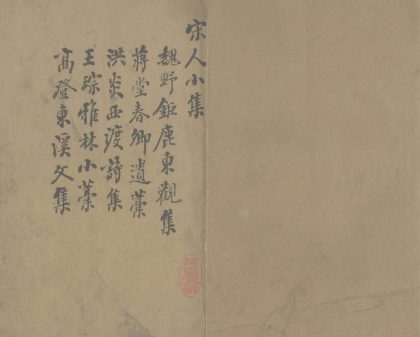 宋人小集
魏野鉅鹿東觀集
蔣堂春卿遺藁
洪炎西渡詩集
王琮雅林小藁
高登東溪文集